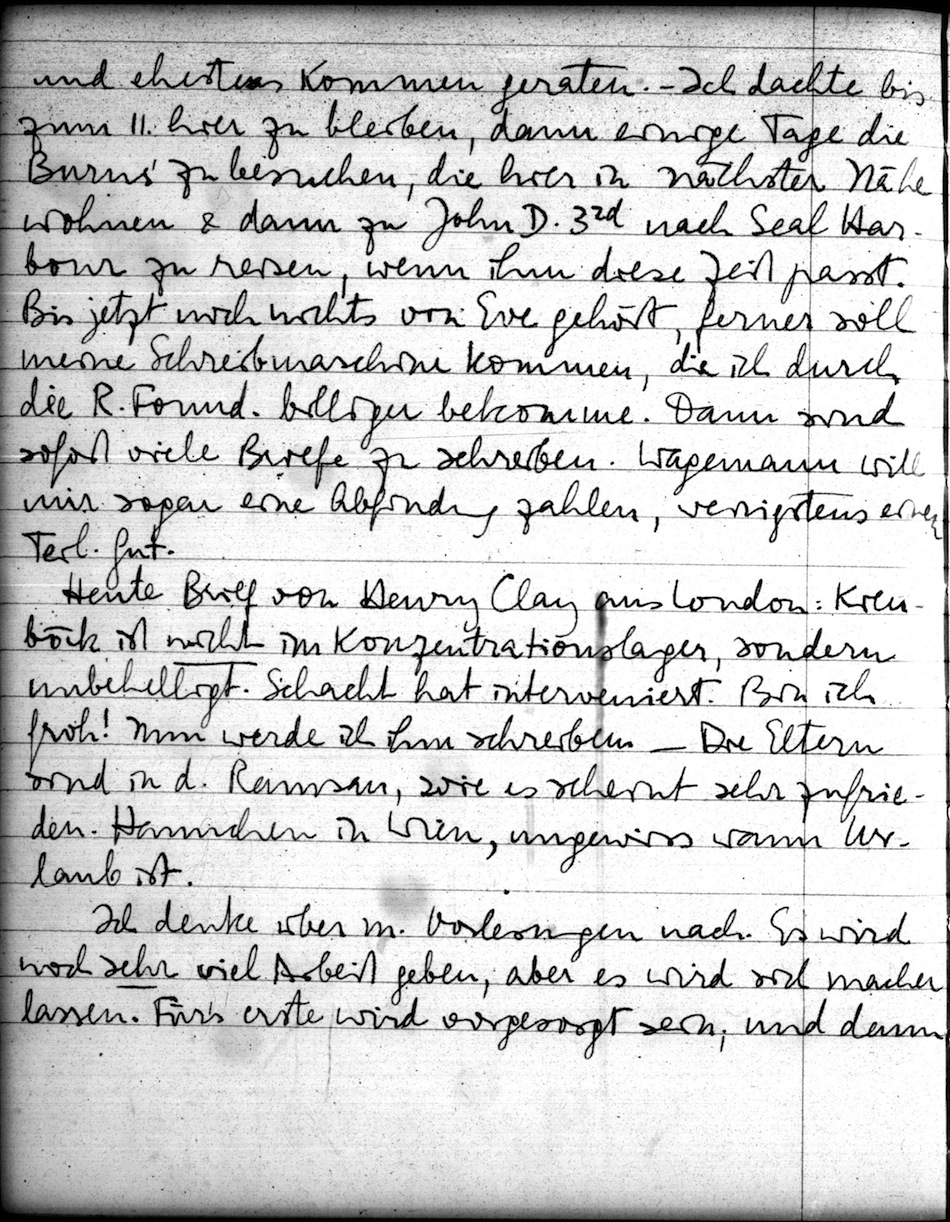 und ehestens Kommen geraten. – Ich dachte bis
zum 11. hier zu bleiben, dann einige Tage die
Burns' zu besuchen, die hier in nächster Nähe
wohnen & dann zu John D. 3rd nach Seal Har-
bour zu reisen, wenn ihm diese Zeit passt.
Bis jetzt noch nichts von Eve gehört, ferner soll
meine Schreibmaschine kommen, die ich durch
die R. Found. billiger bekomme. Dann sind
sofort viele Briefe zu schreiben. Wagemann will
mir sogar eine Abfindung zahlen, wenigstens einen
Teil. Gut.
Heute Brief von Henry Clay aus London: Kien-
böck ist nicht im Konzentrationslager, sondern
unbehelligt. Schacht hat interveniert. Bin ich
froh! Nun werde ich ihm schreiben – Die Eltern
sind in d. Ramsau, wie es scheint sehr zufrie-
den. Hannchen in Wien, ungewiss wann Ur-
laub ist.
Ich denke über m. Vorlesungen nach. Es wird
noch sehr viel Arbeit geben, aber es wird sich machen
lassen. Fürs erste wird vorgesorgt sein, und dann